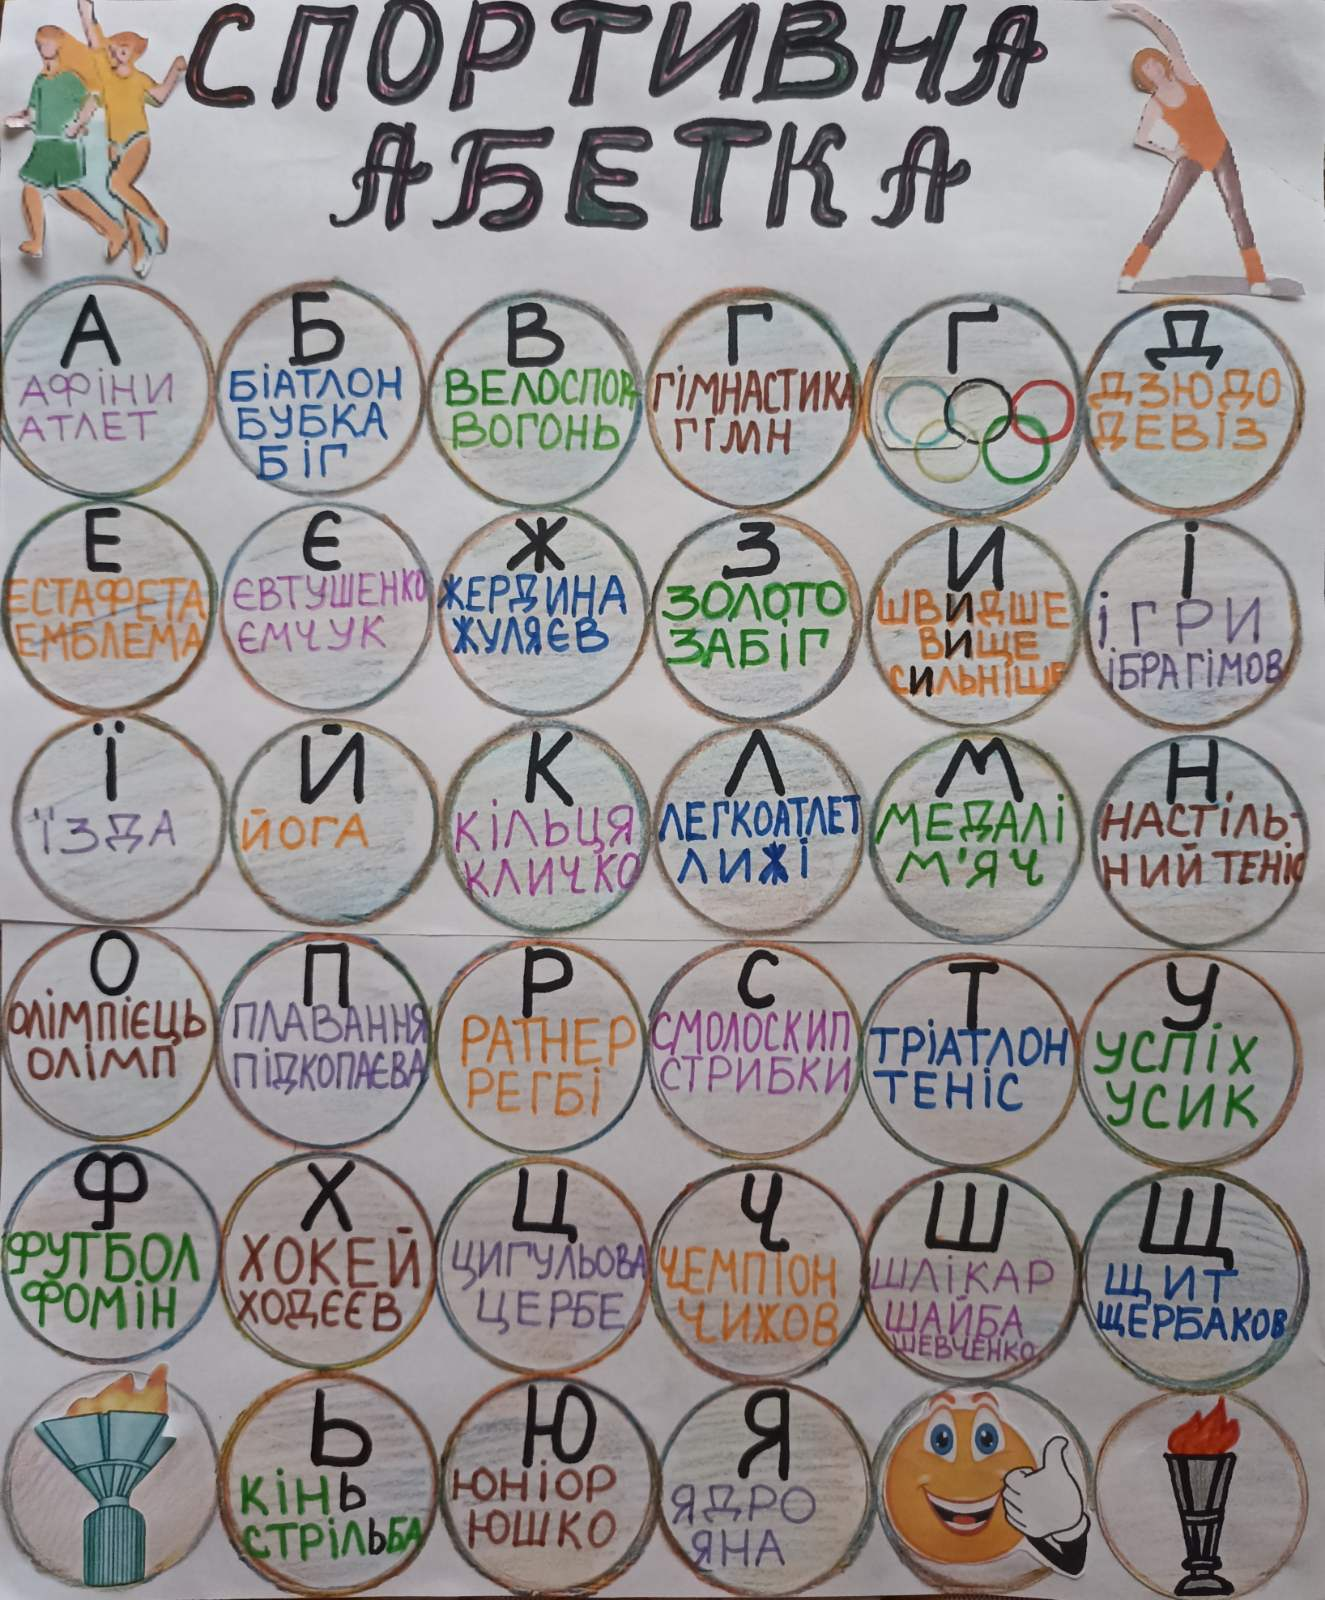 СПОРТИВНА
АБЕТКА
А
АФІНИ
АТЛЕТ
Б
БІАТЛОН
БУБКА
БІГ
В
ВЕЛОСПОР
ВОГОНЬ
Г
ГІМНАСТИКА
ГІМН
Ґ
Д
ДЗЮДО
ДЕВІЗ
Е
ЕСТАФЕТА
ЕМБЛЕМА
Є
ЄВТУШЕНКО
ЄМЧУК
Ж
ЖЕРДИНА
ЖУЛЯЄВ
З
ЗОЛОТО
ЗАБІГ
И
ШВИДШЕ
ВИЩЕ
СИЛЬНІШЕ
І
ІГРИ
ІБРАГІМОВ
Ї
ЇЗДА
Й
ЙОГА
К
КІЛЬЦЯ
КЛИЧКО
Л
ЛЕГКОАТЛЕТ
ЛИЖІ
М
МЕДАЛІ
М'ЯЧ
Н
НАСТІЛЬ-
НИЙ ТЕНІС
О
ОЛІМПІЄЦЬ
ОЛІМП
П
ПЛАВАННЯ
ПІДКОПАЄВА
Р
РАТНЕР
РЕГБІ
С
СМОЛОСКИП
СТРИБКИ
Т
ТРІАТЛОН
ТЕНІС
У
УСПІХ
УСИК
Ф
ФУТБОЛ
ФОМІН
Х
ХОКЕЙ
ХОДЄЄВ
Ц
ЦИГУЛЬОВА
ЦЕРБЕ
Ч
ЧЕМПІОН
ЧИЖОВ
Ш
ШЛІКАР
ШАЙБА
ШЕВЧЕНКО
Щ
ЩИТ
ЩЕРБАКОВ
Ь
КІНЬ
СТРІЛЬБА
Ю
ЮНІОР
ЮШКО
Я
ЯДРО
ЯНА